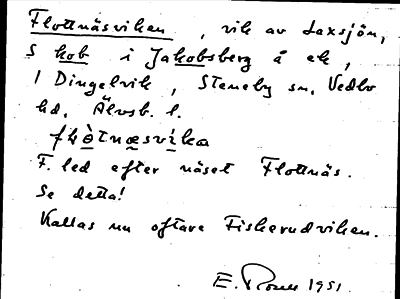 Flottnäsviken, vik av Laxsjön,
S kob i Jakobsberg å ek,
1 Dingelvik, Steneby sn, Vedbo
hd, Älvsb. l.
flòtnæsvika
F. led efter näset Flottnäs.
Se detta!
Kallas nu oftare Fiskerudviken.
E. 1951